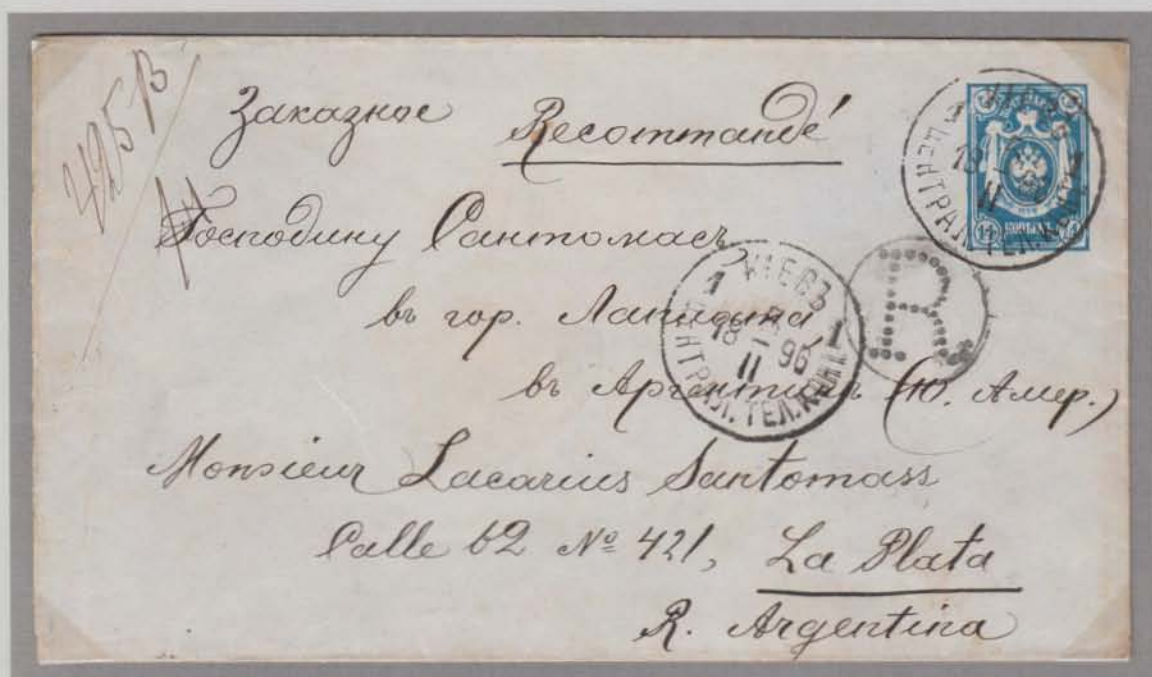 425 В
Заказное Recommandé
Господину Сантомасъ
въ гор. Лаплата,
въ Аргентинѣ (Ю. Амер.)
Monsieur Lacarius Santomass
Calle 62 Nº 421, La Plata
R. Argentina
КІЕВЪ
1 1
18 II 96
ЦЕНТРАЛ. ТЕЛ.
R
КІЕВЪ
1 1
18
II
ЦЕНТРАЛ. ТЕЛ.
11